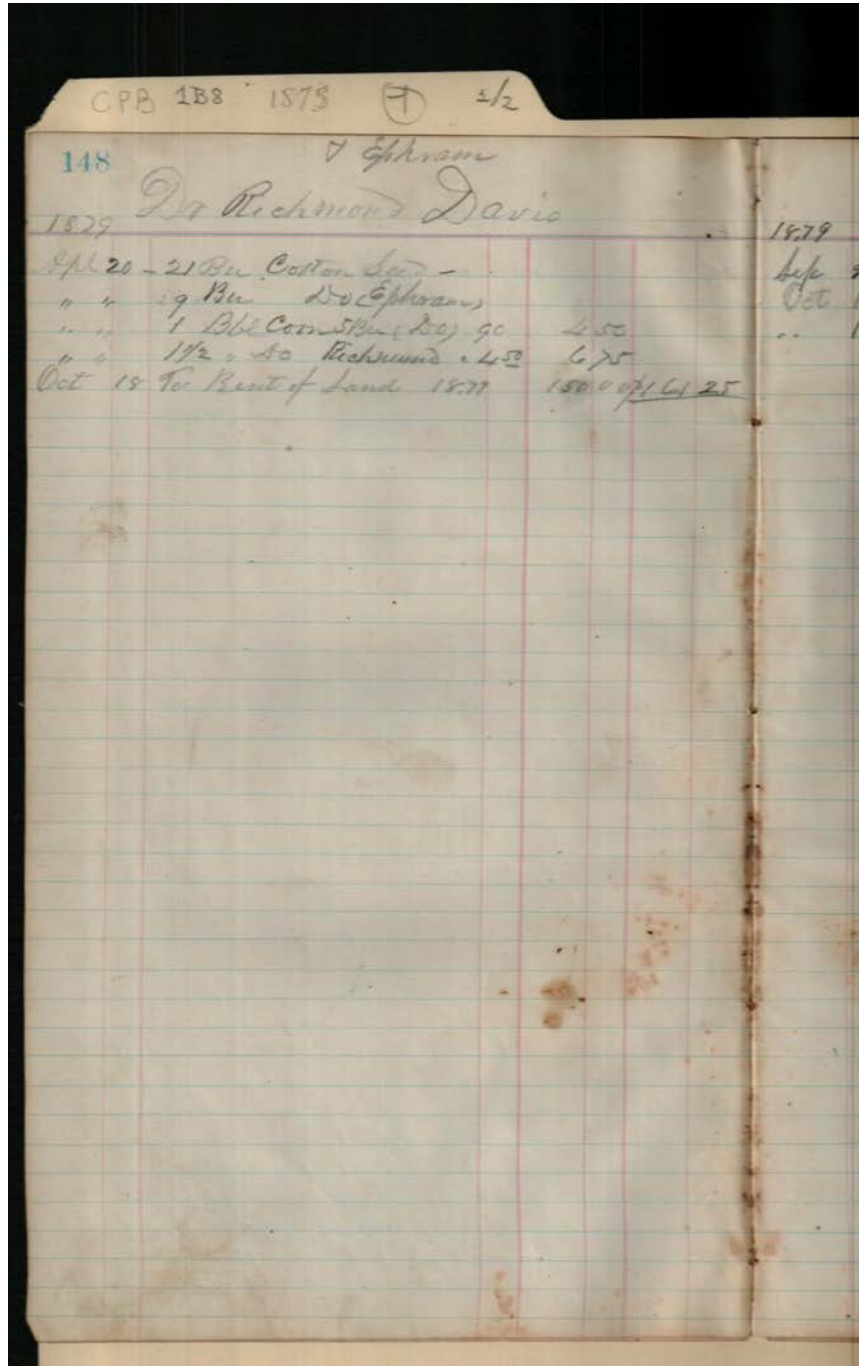 CPB 1B8 1879 1/2
148
& Ephram
Dr Richmond Davis
1879
Apl 20 - 21 Bu Cotton Seed -
" " 9 Bu Do (Ephram)
" " 1 Bbl Corn 5 Bu (Do) 90 4 50
" " 1 1/2 " Do Richmond " 4 50 6 75
Oct 18 To Rent of Land 1879 150 00 $161 25
1879
Sep
Oct 1
" 1